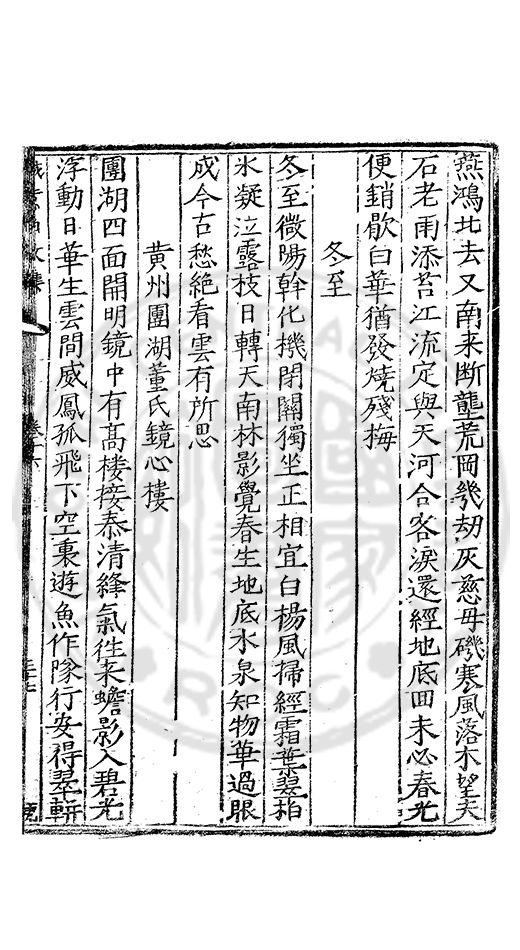 燕鴻北去又南來斷壟荒岡幾劫灰慈母磯寒風落木望夫
石老雨添苔江流定與天河合客淚還經地底回未必春光
便銷歇白華猶發燒殘梅
冬至
冬至微陽幹化機閉關獨坐正相宜白楊風掃經霜葉叢柏
氷凝泣露枝日轉天南林影覺春生地底水泉知物華過眼
成今古愁絕看雲有所思
黄州團湖董氏鏡心樓
團湖四面開明鏡中有髙樓接泰清絳氣徃来蟾影入碧光
浮動日華生雲間威鳳孤飛下空裏遊魚作隊行安得翠輧